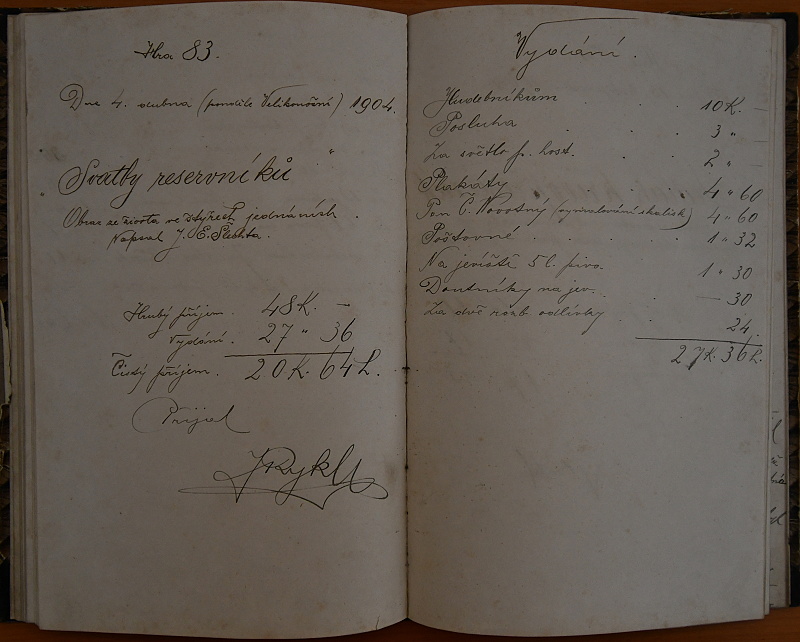 Hra 83.
Dne 4. dubna (pondělí Velikonoční) 1904.
„Svatby reservníků“
Obraz ze života ve čtyřech jednáních.
Napsal J. E. Šlechta.
Hrubý příjem. 48 K. —
Vydání. 27 " 36
Čistý příjem. 20 K. 64 h.
Přijal
JRykl
Vydání.
Hudebníkům 10 K. —
Posluha . . . 3 " —
Za světlo p. host. . . 2 " —
Plakáty . . . 4 " 60
Pan Č. Novotný ( skalisk) 4 " 60
Poštovné . . . . 1 " 32
Na jeviště 5 l. piva. . 1 " 30
Doutníky na jev. . . — 30
Za dvě rozb. odlivky . . 24.
27 K. 36 h.